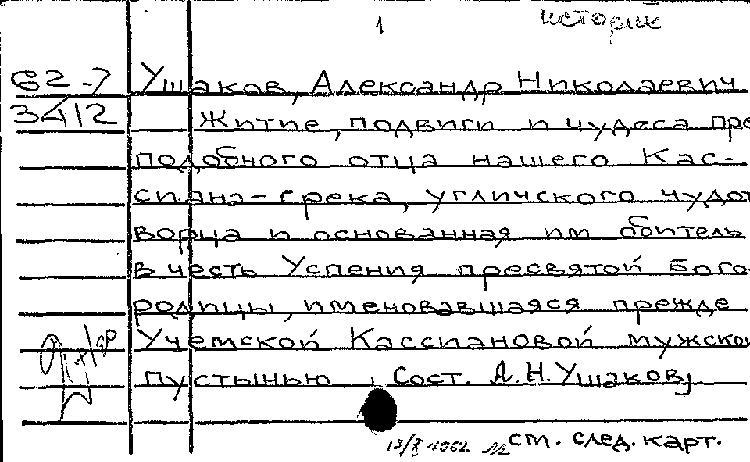 1
историк
62-7
3412
Ушаков, Александр Николаевич
Житие, подвиги и чудеса пре
подобного отца нашего Кас-
сиана-грека, угличского чудот
ворца и основанная им обитель
в честь Успения пресвятой Бого-
родицы, именовавшаяся прежде
Учемской Кассиановой мужской
пустынью. Сост. А.Н.Ушаков
см. след. карт.